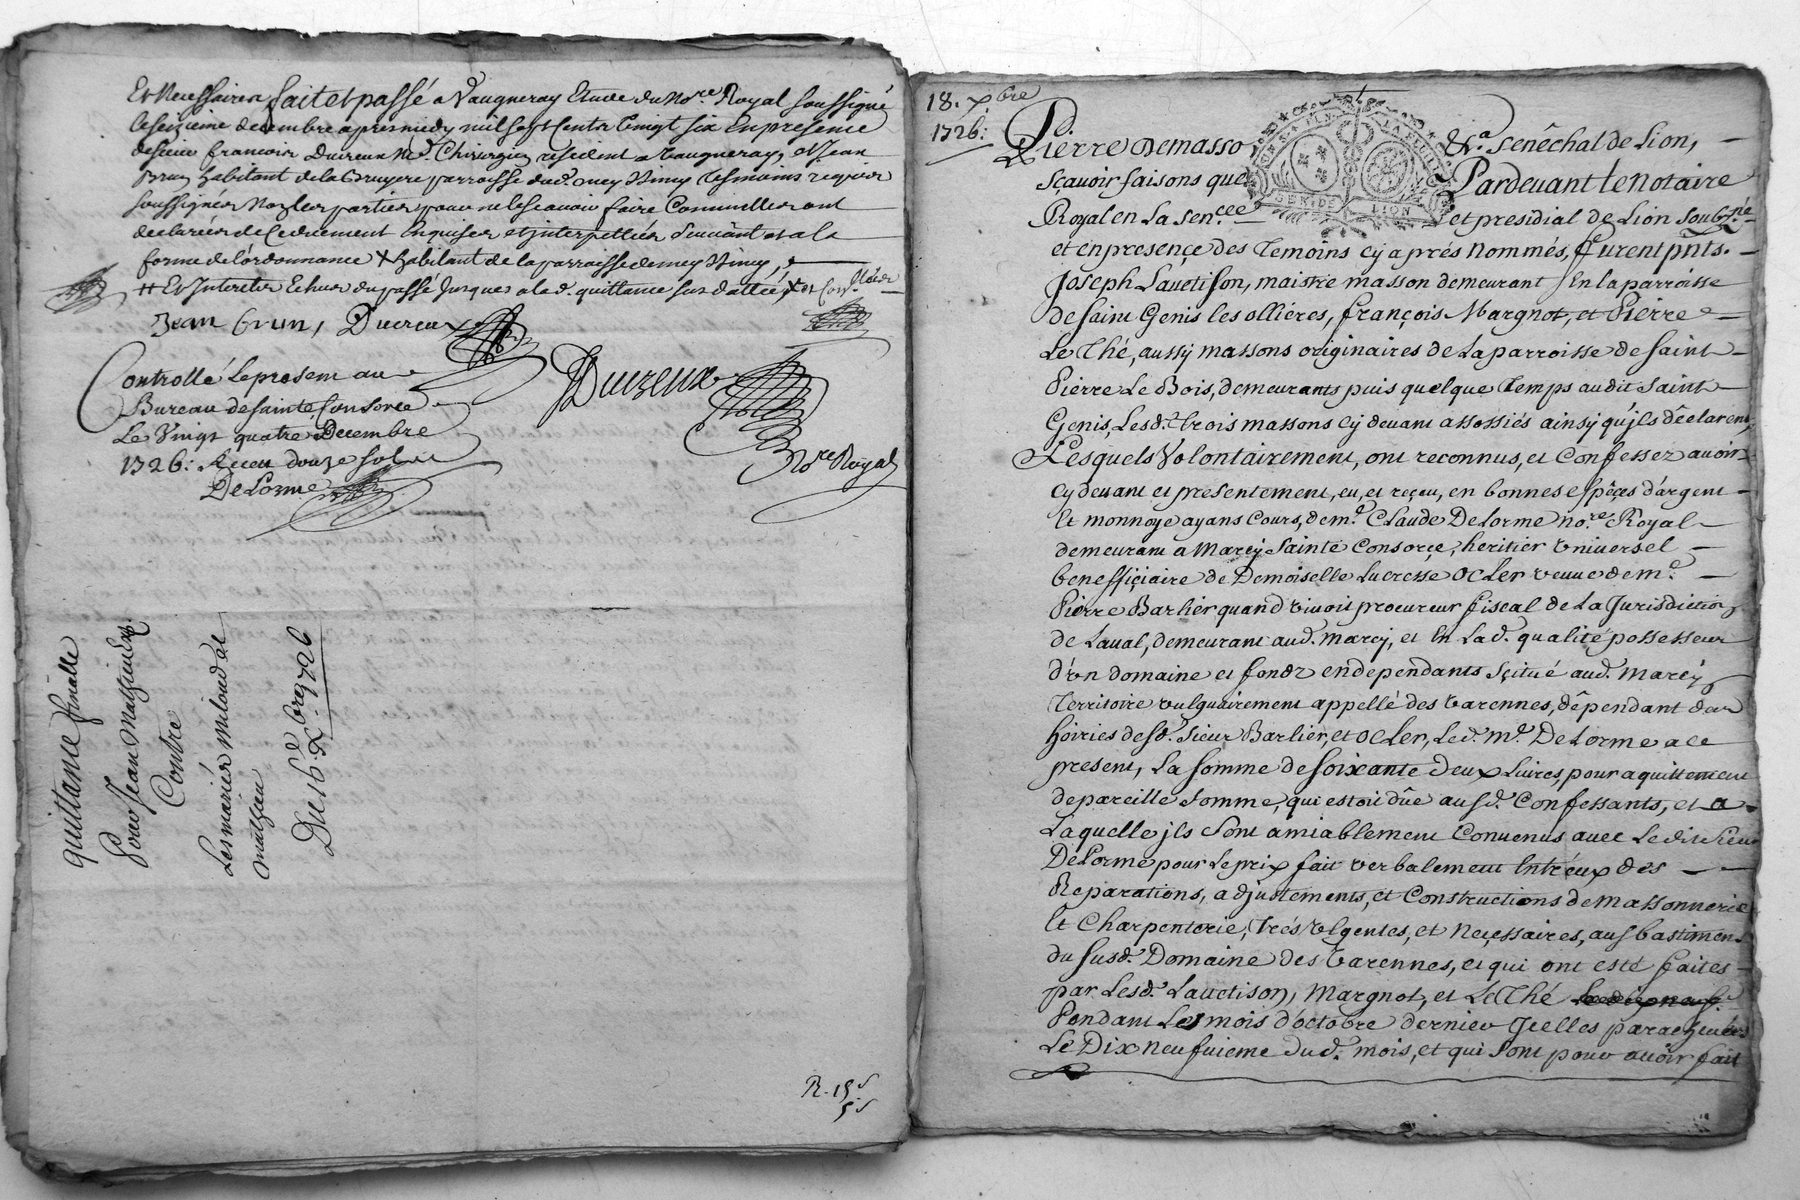 Et Necessaires fait et passé a Vaugneray Etude du No.re Royal soussigné
le seizieme decembre apres midy mil sept Cents Vingt six En presence
de sieur francois Ducreux M.e Chirurgien resident a Vaugneray, et Jean
Brun habitant de la Bruyere parroisse dud. mey
soussignés Non les parties pour ne le scavoir faire Comme elles ont
declarées de Ce duement Enquises et Interpellées Suivant et a la
forme de l'ordonnance + habitant de la parroisse de mey
++ Et Interets Echus du passé Jusques a la d. quittance
Jean brun, Ducreux
Controllé le present au
Bureau de sainte Consorce
Le Vingt quatre Decembre
1726: Receu douze sols
DeLorme
Ducreux
No.re Royal
quittance finalle
Pour Jean Mathieu
Contre
Les mariés Milond et
Du 16.e Xbre 1726
R. 15 s
5 s
18. Xbre
1726:
Pierre Demasso
&.a senêchal de Lion,
sçavoir faisons que
Pardevant le Notaire
GEN. DE LION
Royal en La sen.cée
et presidial de Lion soubs.né
et en presençe des Temoins cy aprés nommés, furent pnts.
Joseph Lauetison, maistre masson demeurant En la parroisse
de saint Genis les ollières, françois Margnot, et Pierre
Le Thé, aussy massons originaires de La parroisse de saint
Pierre Le Bois, demeurants puis quelque Temps audit saint
Genis, Lesd. trois massons cy devant assossiés ainsy qu'jls dêclarent,
Lesquels Volontairement, ont reconnus, et Confessez avoir
cy devant et presentement, eu, et reçeu, en bonnes espêçes d'argent
Et monnoye ayans Cours, de m.e Claude DeLorme no.re Royal
demeurant a Marcy Sainte Consorçe, heritier vniversel
beneffiçiaire de Demoiselle Lucresse ocler veuve de m.e
Pierre Barlier quand vivoit procureur fiscal de La Jurisdiction
de Laval, demeurant aud. marcy, et En La d. qualité possesseur
d'vn domaine et fondz en dependants sçitué aud. Marcy
Territoire vulguairement appellé des Varennes, dêpendant des
hoiries desd. Sieur Barlier, et ocler, Led. m.e DeLorme a ce
present, La somme de soixante Deux Livres, pour aquittement
de pareille somme, qui estoit dûe ausd. Confessants, et a
Laquelle jls sont amiablement Convenus avec Le dit sieur
DeLorme pour Le prix fait verbalement Entr'eux des
Reparations, adjustements, et Constructions de massonnerie
Et Charpenterie, Trés vrgentes, et neçessaires, aux bastimens
du susd. Domaine des Varennes, et qui ont esté faites
par Lesd. Lauetison, Margnot, et Le Thé
Pendant Les mois d'octobre dernier Jcelles parachevées
Le Dix neufuieme dud. mois, et qui sont pour avoir fait